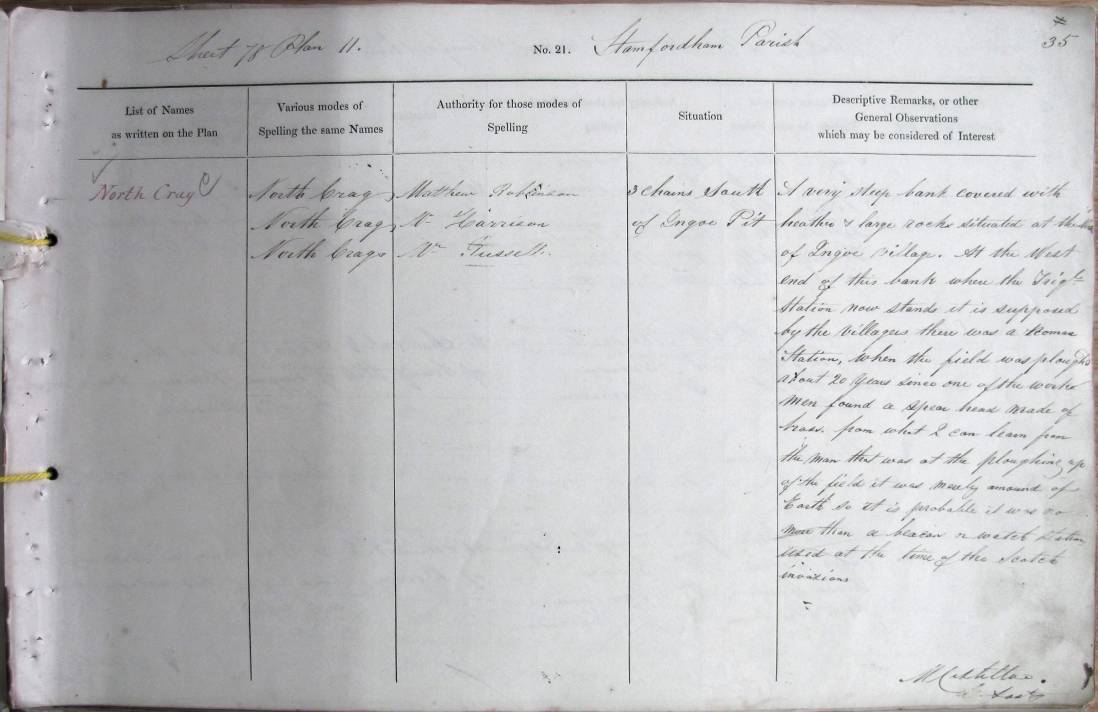 Sheet 78 Plan 11.
No. 21.
Stamfordham Parish
35
List of Names
as written on the Plan
Various modes of
Spelling the same Names
Authority for those modes of
Spelling
Situation
Descriptive Remarks, or other
General Observations
which may be considered of Interest
North Crag
North Crag
North Crag
North Crags
Mathew Robinson
Mr Harrison
Mr
3 Chains South
of Ingoe Pit
A very steep bank covered with
heather & large rocks situated at the
of Ingoe village. At the West
end of this bank where the Trigl
Station now stands it is supposed
by the villagers there was a Roman
Station, when the field was ploughd
about 20 years since one of the work
men found a spear head made of
brass. from what I can learn from
the man that was at the ploughing up
of the field it was merely a mound of
Earth so it is probable it was no
more than a beacon or watch Station
used at the time of the Scotch
invasions